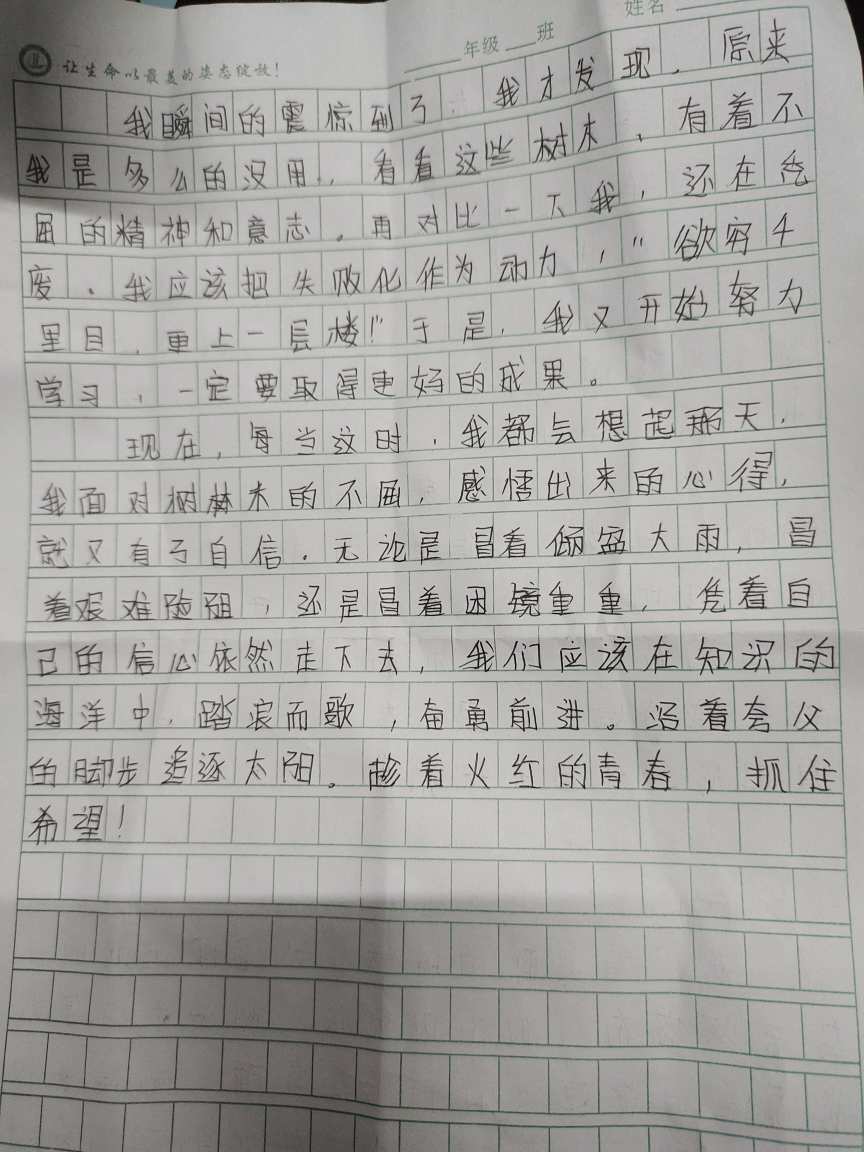 姓名
年级 班
让生命以最美的姿态绽放!
我瞬间的震惊到了.我才发现,原来
我是多么的没用,看看这些树木,有着不
屈的精神和意志,再对比一下我,还在
废.我应该把失败化作为动力,"欲穷千
里目,更上一层楼!"于是,我又开始努力
学习,一定要取得更好的成果。
现在,每当这时,我都会想起那天,
我面对树林木的不屈,感悟出来的心得,
就又有了自信.无论是冒着倾盆大雨,冒
着艰难险阻,还是冒着困镜重重,凭着自
己的信心依然走下去,我们应该在知识的
海洋中,踏浪而歌,奋勇前进。沿着夸父
的脚步追逐太阳。趁着火红的青春,抓住
希望!